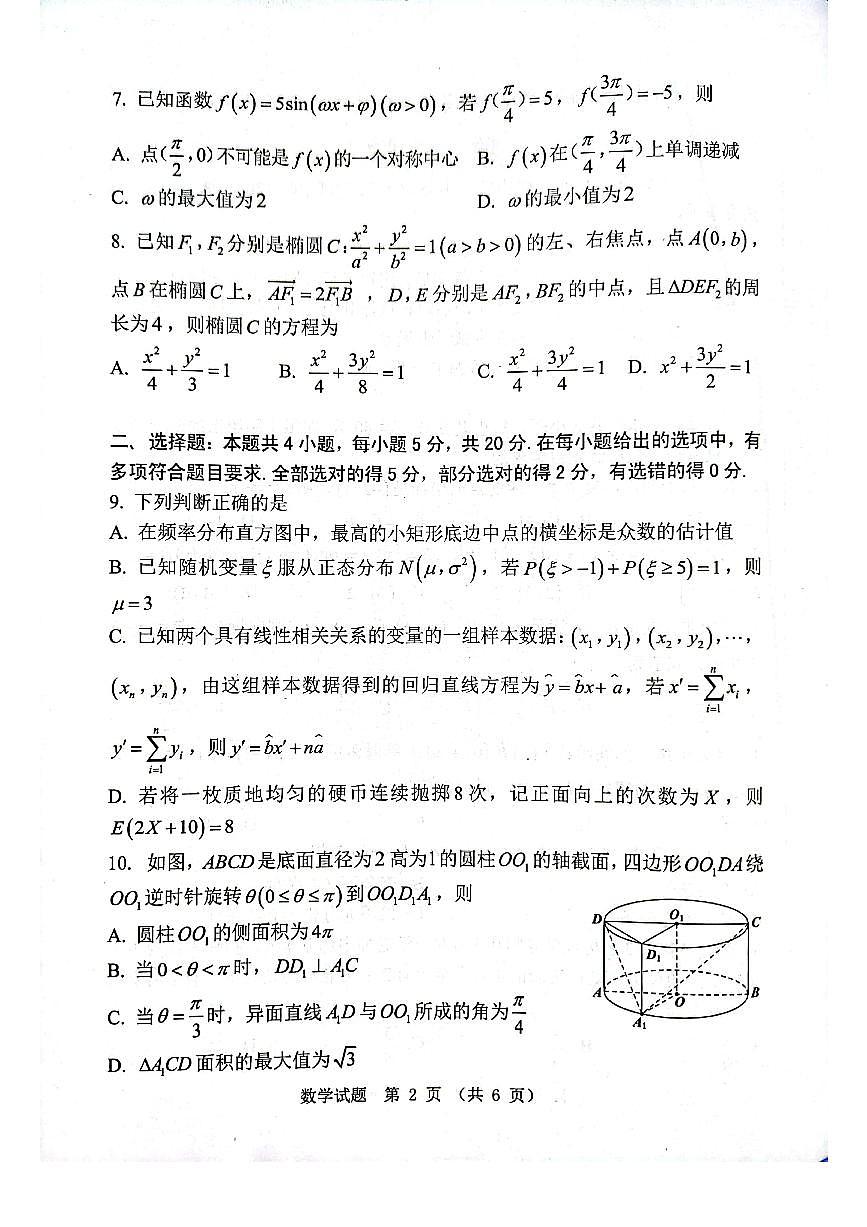 7. 已知函数 f(x)=5sin(ωx+φ)(ω>0)，若 f(π/4)=5，f(3π/4)=-5，则
A. 点(π/2,0)不可能是 f(x)的一个对称中心 B. f(x)在(π/4,3π/4)上单调递减
C. ω的最大值为2 D. ω的最小值为2
8. 已知F₁，F₂分别是椭圆C:x²/a²+y²/b²=1(a>b>0)的左、右焦点，点A(0,b)，
点B在椭圆C上，AF₁=2F₁B，D,E分别是AF₂,BF₂的中点，且ΔDEF₂的周
长为4，则椭圆C的方程为
A. x²/4+y²/3=1 B. x²/4+3y²/8=1 C. x²/4+3y²/4=1 D. x²+3y²/2=1
二、选择题：本题共4小题，每小题5分，共20分.在每小题给出的选项中，有
多项符合题目要求.全部选对的得5分，部分选对的得2分，有选错的得0分.
9. 下列判断正确的是
A. 在频率分布直方图中，最高的小矩形底边中点的横坐标是众数的估计值
B. 已知随机变量ξ服从正态分布N(μ,σ²)，若P(ξ>-1)+P(ξ≥5)=1，则
μ=3
C. 已知两个具有线性相关关系的变量的一组样本数据：(x₁,y₁),(x₂,y₂),…，
(xₙ,yₙ)，由这组样本数据得到的回归直线方程为ŷ=b̂x+â，若x'=∑ⁿᵢ₌₁xᵢ，
y'=∑ⁿᵢ₌₁yᵢ，则y'=b̂x'+nâ
D. 若将一枚质地均匀的硬币连续抛掷8次，记正面向上的次数为X，则
E(2X+10)=8
10. 如图，ABCD是底面直径为2高为1的圆柱OO₁的轴截面，四边形OO₁DA绕
OO₁逆时针旋转θ(0≤θ≤π)到OO₁D₁A₁，则
A. 圆柱OO₁的侧面积为4π
B. 当0<θ<π时，DD₁⊥A₁C
C. 当θ=π/3时，异面直线A₁D与OO₁所成的角为π/4
D. ΔA₁CD面积的最大值为√3
D O₁ C
D₁
A O B
A₁
数学试题 第 2 页 （共 6 页）